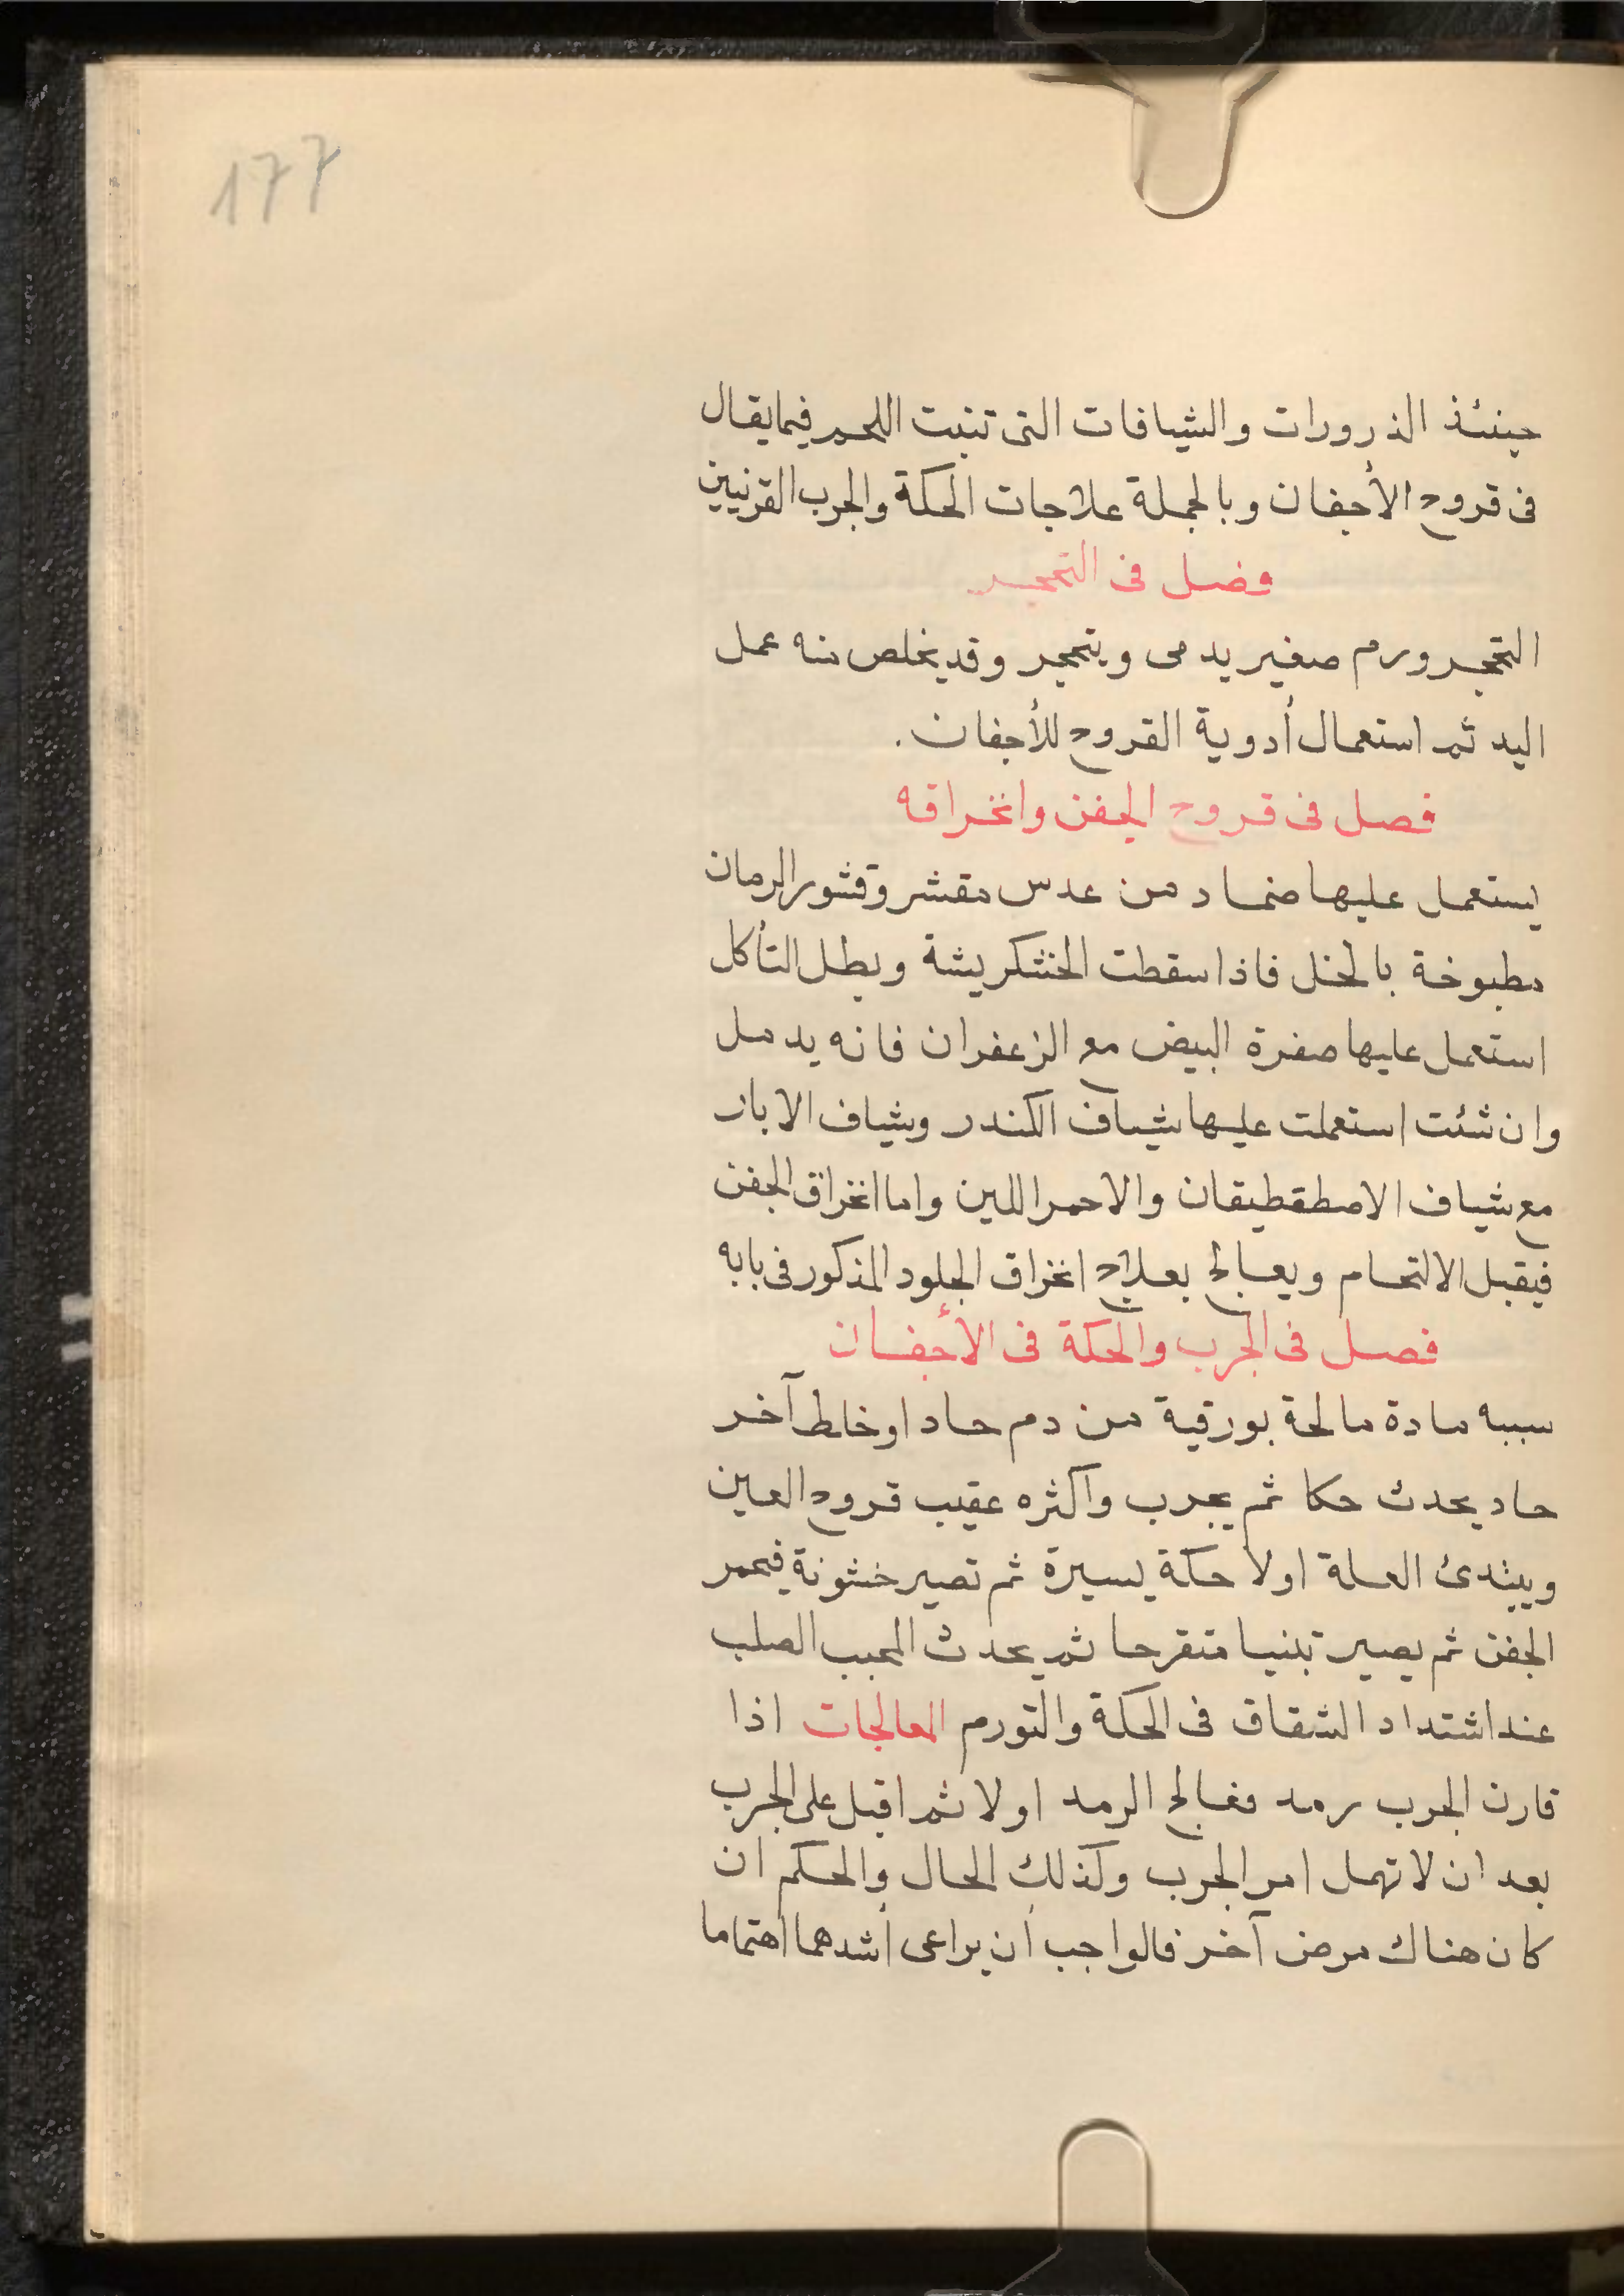 177
حينئذ الذرورات والشيافات التى تنبت اللحم فيما يقال
فى قروح الأجفان وبالجملة علاجات الحكة والجرب القرنيين
فصل فى التحجر
التحجر ورم صغير يدمى ويتحجر وقد يخلص منه عمل
اليد ثم استعمال أدوية القروح للأجفان.
فصل فى قروح الجفن وانخراقه
يستعمل عليها ضماد من عدس مقشر وقشور الرمان
مطبوخة بالخل فاذا سقطت الخشكريشة وبطل التأكل
استعمل عليها صفرة البيض مع الزعفران فانه يدمل
وان شئت استعملت عليها شياف الكندر وشياف الابار
مع شياف الاصطفطيقان والاحمر اللين واما انخراق الجفن
فيقبل الالتحام ويعالج بعلاج انخراق الجلود المذكور فى بابه
فصل فى الجرب والحكة فى الأجفان
سببه مادة مالحة بورقية من دم حاد او خلط آخر
حاد يحدث حكا ثم يجرب واكثره عقيب قروح العين
ويبتدئ العلة اولا حكة يسيرة ثم تصير خشونة فيحمر
الجفن ثم يصير تينيا متقرحا ثم يحدث المحبب الصلب
عند اشتداد الشقاق فى الحكة والتورم المعالجات اذا
قارن الجرب رمد فعالج الرمد اولا ثم اقبل على الجرب
بعد ان لا تهمل امر الجرب وكذلك الحال والحكم ان
كان هناك مرض آخر فالواجب أن يراعى أشدهما اهتماما